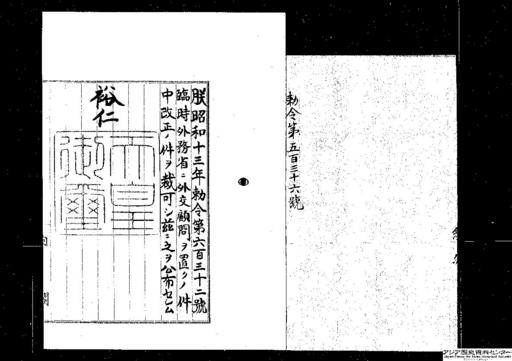 勅令第五百三十六號
朕昭和十三年勅令第六百三十二號
臨時外務省ニ外交顧問ヲ置クノ件
中改正ノ件ヲ裁可シ茲ニ之ヲ公布セシム
裕仁
天皇
御璽
内閣
アジア歴史資料センター
Japan Center for Asian Historical Records